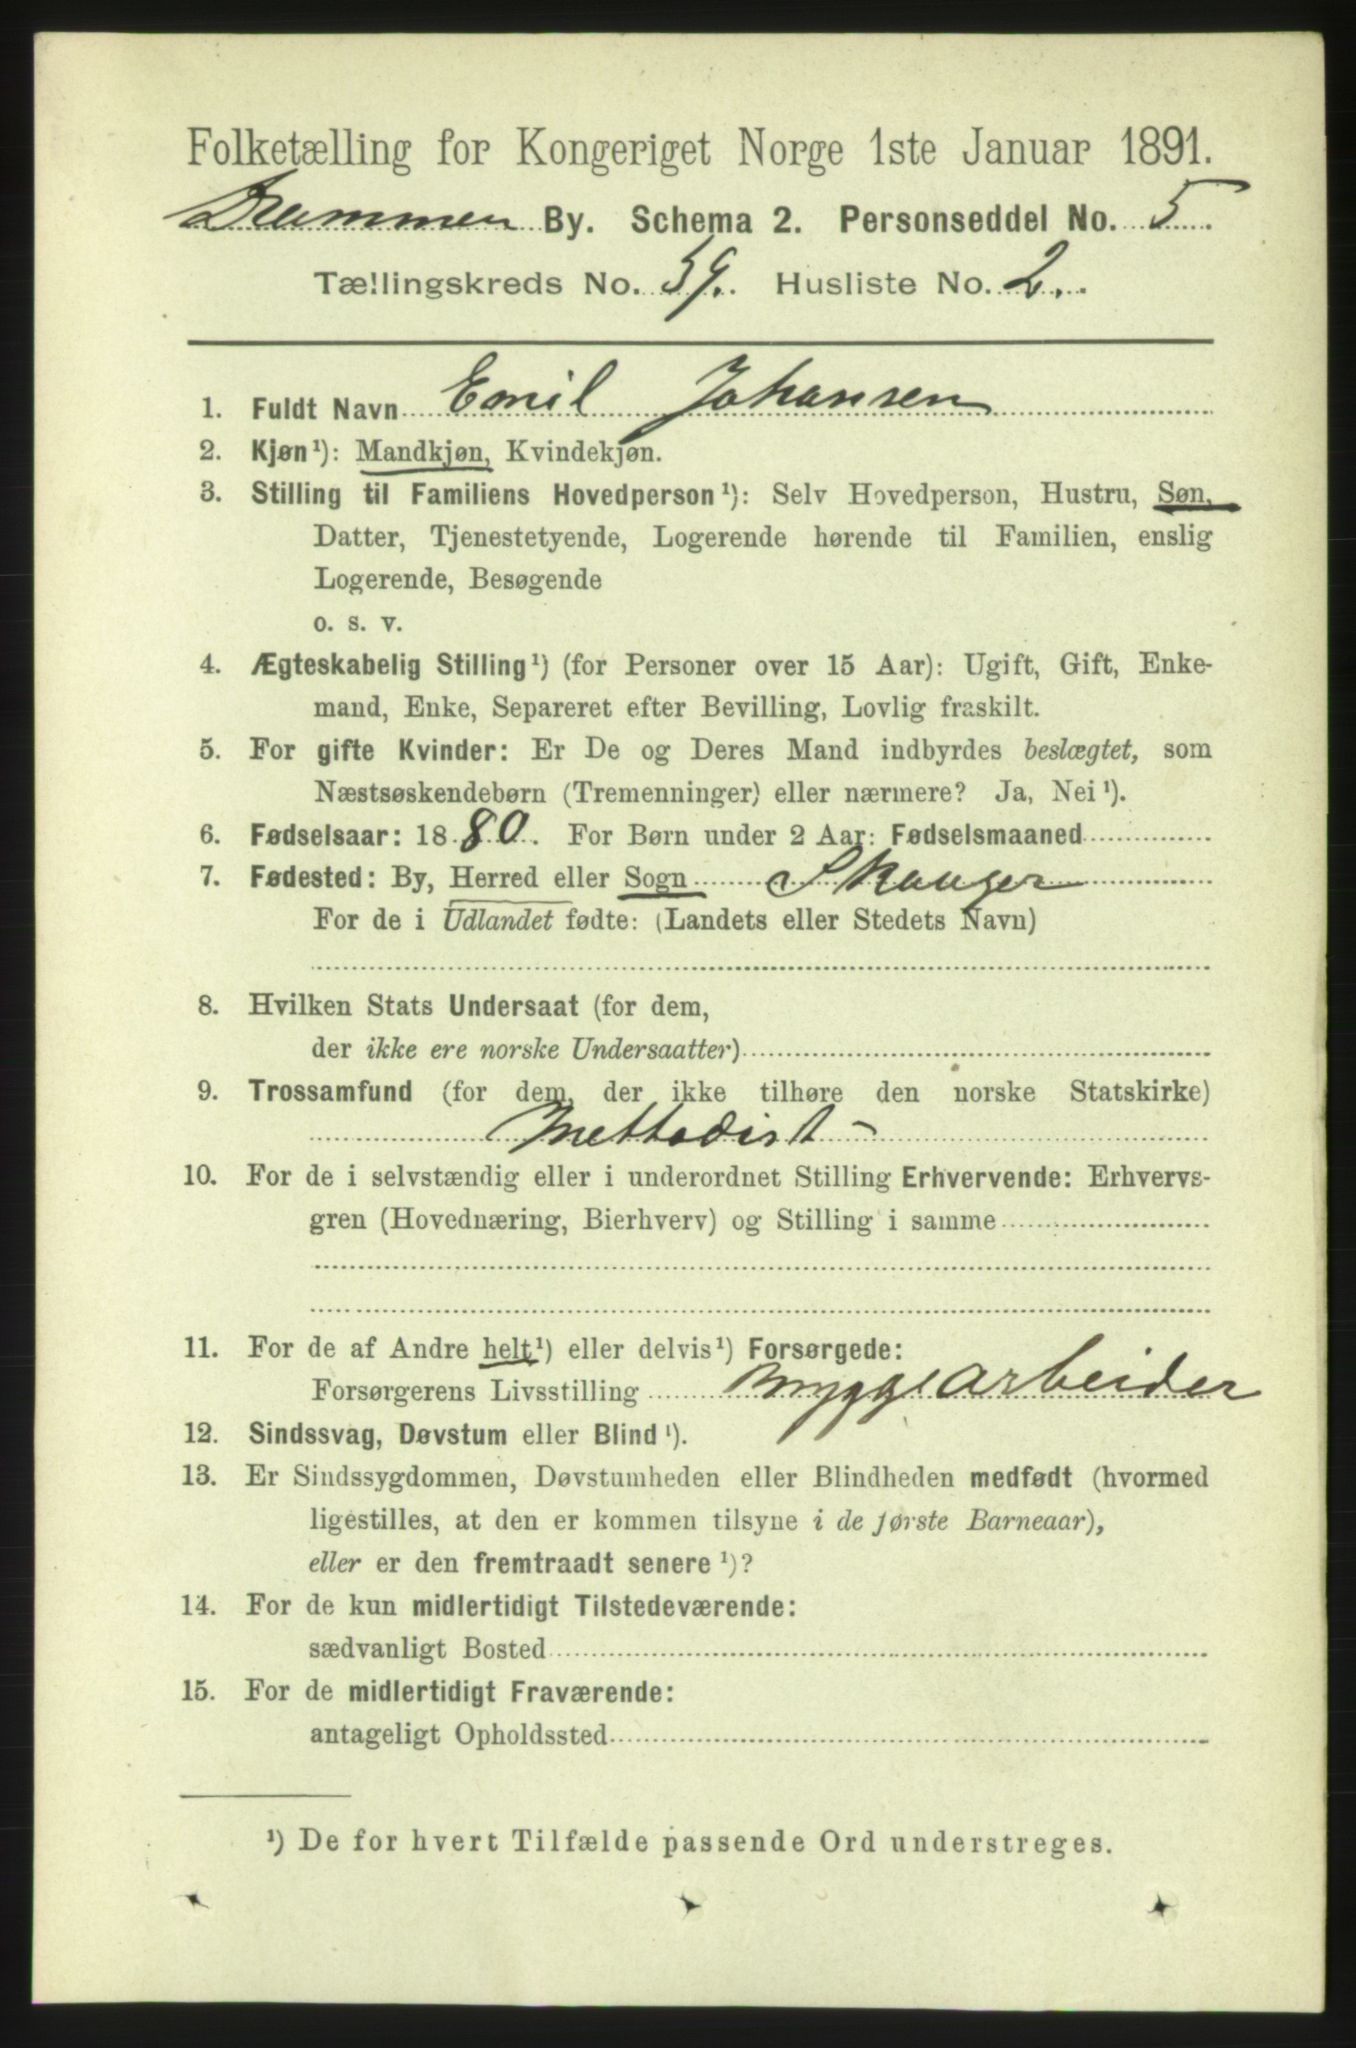 Folketælling for Kongeriget Norge 1ste Januar 1891.
Drammen By. Schema 2. Personseddel No. 5
Tællingskreds No. 59. Husliste No. 2.
1. Fuldt Navn Emil Johansen
2. Kjøn¹): Mandkjøn, Kvindekjøn.
3. Stilling til Familiens Hovedperson¹): Selv Hovedperson, Hustru, Søn,
Datter, Tjenestetyende, Logerende hørende til Familien, enslig
Logerende, Besøgende
o. s. v.
4. Ægteskabelig Stilling¹) (for Personer over 15 Aar): Ugift, Gift, Enke-
mand, Enke, Separeret efter Bevilling, Lovlig fraskilt.
5. For gifte Kvinder: Er De og Deres Mand indbyrdes beslægtet, som
Næstsøskendebørn (Tremenninger) eller nærmere? Ja, Nei¹).
6. Fødselsaar: 1880. For Børn under 2 Aar: Fødselsmaaned
7. Fødested: By, Herred eller Sogn Skauger
For de i Udlandet fødte: (Landets eller Stedets Navn)
8. Hvilken Stats Undersaat (for dem,
der ikke ere norske Undersaatter)
9. Trossamfund (for dem, der ikke tilhøre den norske Statskirke)
Mettodist -
10. For de i selvstændig eller i underordnet Stilling Erhvervende: Erhvervs-
gren (Hovednæring, Bierhverv) og Stilling i samme
11. For de af Andre helt¹) eller delvis¹) Forsørgede:
Forsørgerens Livsstilling Bryggearbeider
12. Sindssvag, Døvstum eller Blind¹).
13. Er Sindssygdommen, Døvstumheden eller Blindheden medfødt (hvormed
ligestilles, at den er kommen tilsyne i de første Barneaar),
eller er den fremtraadt senere¹)?
14. For de kun midlertidigt Tilstedeværende:
sædvanligt Bosted
15. For de midlertidigt Fraværende:
antageligt Opholdssted
¹) De for hvert Tilfælde passende Ord understreges.